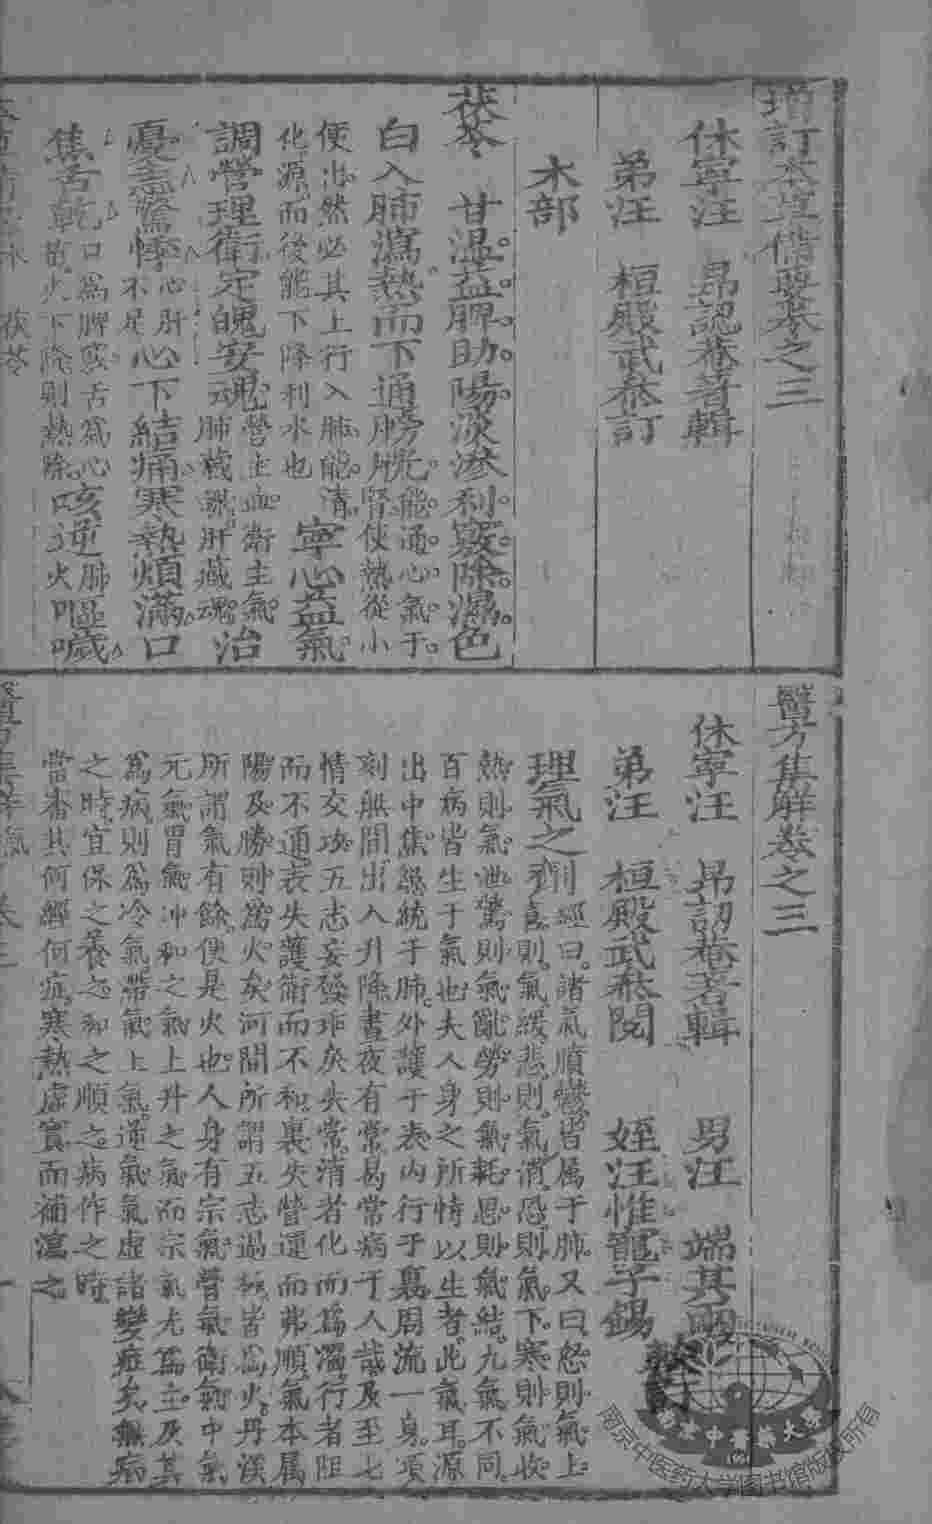 增訂本草備要卷之三
休寧汪　昂訒菴著輯
弟汪　桓殿武叅訂
木部
茯苓　甘溫。益脾。助陽。淡滲利竅。除濕。色
白入肺瀉熱。而下通膀胱。能通心氣于腎。使熱從小
便出。然必其上行入肺。能清化源。而後能下降利水也　寧心益氣。
調營理衛。定魄安魂。營主血。衛主氣。肺藏魄。肝藏魂。治
憂恚驚悸心肝不足心下結痛。寒熱煩滿。口
焦舌乾口為脾竅。舌為心苗。火下降則熱除。咳逆肺火嘔噦
醫方集解卷之三
休寧汪　昂訒菴著輯　男汪　端其兩
弟汪　桓殿武叅閱　姪汪惟寵子錫
理氣之劑　經曰。諸氣膹鬱。皆属于肺。又曰。怒則氣上。
喜則。氣緩。悲則。氣消。恐則氣。下。寒則氣收。
熱則氣泄。驚則氣亂。勞則氣耗。思則氣結。九氣不同。
百病皆生于氣也。夫人身之所恃以生者。此氣耳。源
出中焦。総統于肺。外護于表。内行于裏。周流一身。頃
刻無間。出入升降。晝夜有常。曷常病于人哉。及至七
情交攻。五志妄發。乖戾失常。清者化而為濁。行者阻
而不通。表失護衛而不和。裏失營運而弗順。氣本属
陽。及勝則為火矣。河間所謂五志過極。皆為火。丹溪
所謂氣有餘。便是火也。人身有宗氣。營氣。衛氣。中氣
元氣。胃氣。冲和之氣。上升之氣。而宗氣尤為主。及其
為病。則為冷氣。滯氣。上氣。逆氣。氣虚諸變症矣。無病
之時。宜保之養之。和之順之。病作之時
當審其何經何症。寒熱虚實而補瀉之
南京中医药大学图书馆版权所有